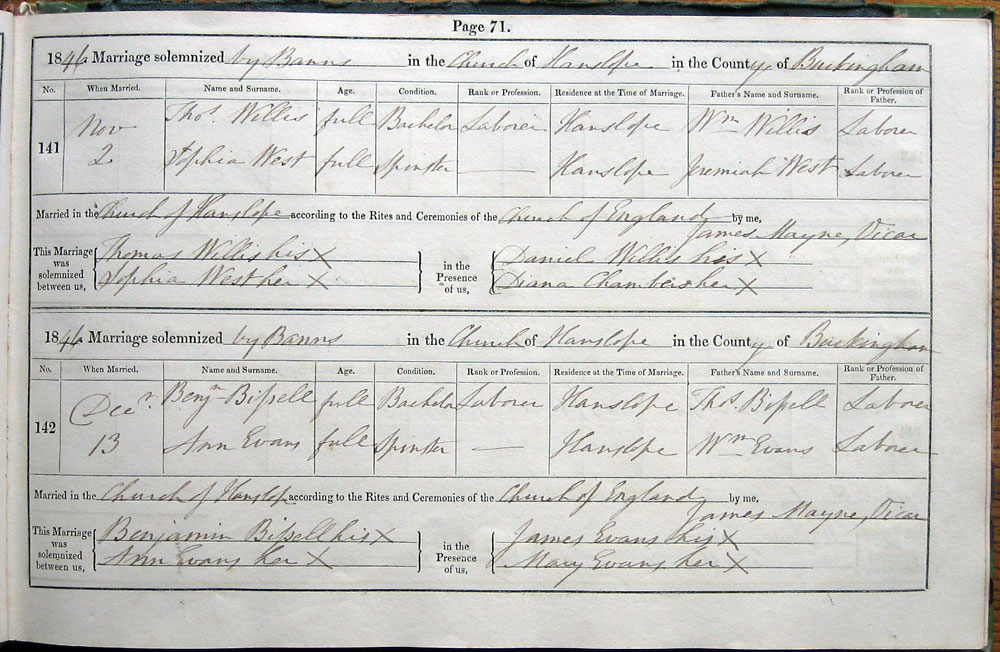 Page 71.
1846 Marriage solemnized by Banns in the Church of Hanslope in the County of Buckingham
No. When Married. Name and Surname. Age. Condition. Rank or Profession. Residence at the Time of Marriage. Father's Name and Surname. Rank or Profession of Father.
141 Nov 2 Thos. Willis full Bachelor Laborer Hanslope Wm Willis Laborer
Sophia West full Spinster — Hanslope Jeremiah West Laborer
Married in the Church of Hanslope according to the Rites and Ceremonies of the Church of England by me,
James Mayne, Vicar
This Marriage was solemnized between us, { Thomas Willis his X } in the Presence of us, { Daniel Willis his X
Sophia West her X Diana Chambers her X
1846 Marriage solemnized by Banns in the Church of Hanslope in the County of Buckingham
No. When Married. Name and Surname. Age. Condition. Rank or Profession. Residence at the Time of Marriage. Father's Name and Surname. Rank or Profession of Father.
142 Decr. 13 Benjn Bissell full Bachelor Laborer Hanslope Thos. Bissell Laborer
Ann Evans full Spinster — Hanslope Wm Evans Laborer
Married in the Church of Hanslope according to the Rites and Ceremonies of the Church of England by me,
James Mayne, Vicar
This Marriage was solemnized between us, { Benjamin Bissell his X } in the Presence of us, { James Evans his X
Ann Evans her X Mary Evans her X